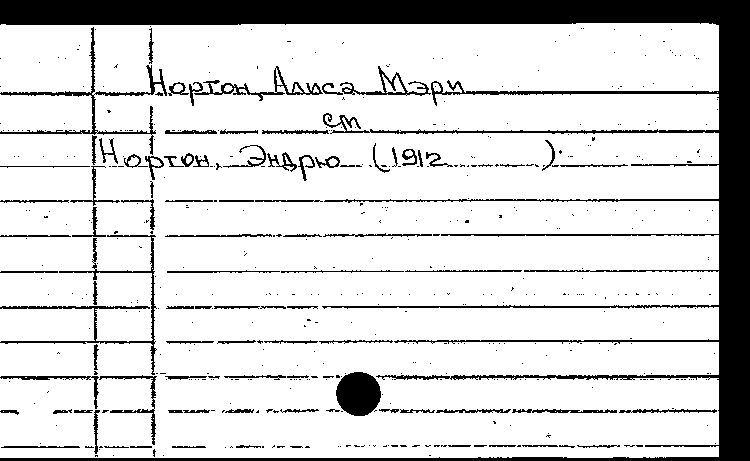 Нортон, Алиса Мэри
см
Нортон, Эндрю (1912 ).